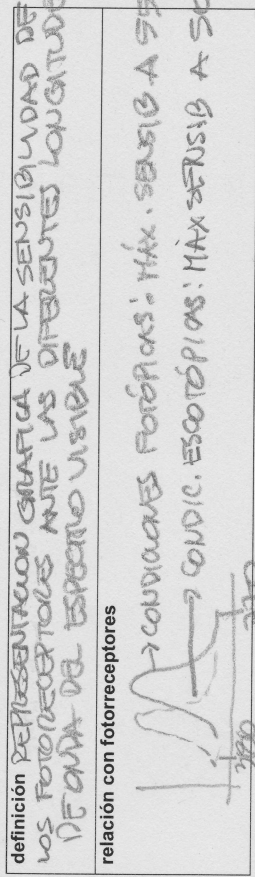 definición REPRESENTACION GRAFICA DE LA SENSIBILIDAD DE
LOS FOTORECEPTORES ANTE LAS DIFERENTES LONGITUDES
DE ONDA DEL ESPECTRO VISIBLE
relación con fotorreceptores
→ CONDICIONES FOTÓPICAS: MÁX. SENSIB A 55
→ CONDIC. ESCOTÓPICAS: MÀX SENSIB A 50
380